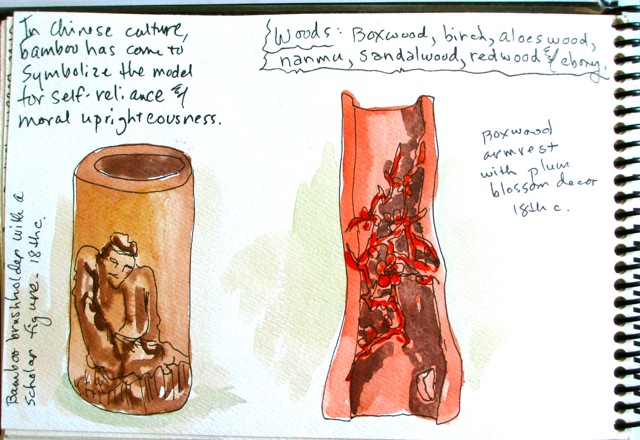 In Chinese culture,
bamboo has come to
symbolize the model
for self-reliance &
moral uprighteousness.
Woods: Boxwood, birch, aloeswood,
nanmu, sandalwood, redwood & ebony.
Boxwood
armrest
with plum
blossom decor
18th c.
Bamboo brushholder with a
scholar figure - 18th c.